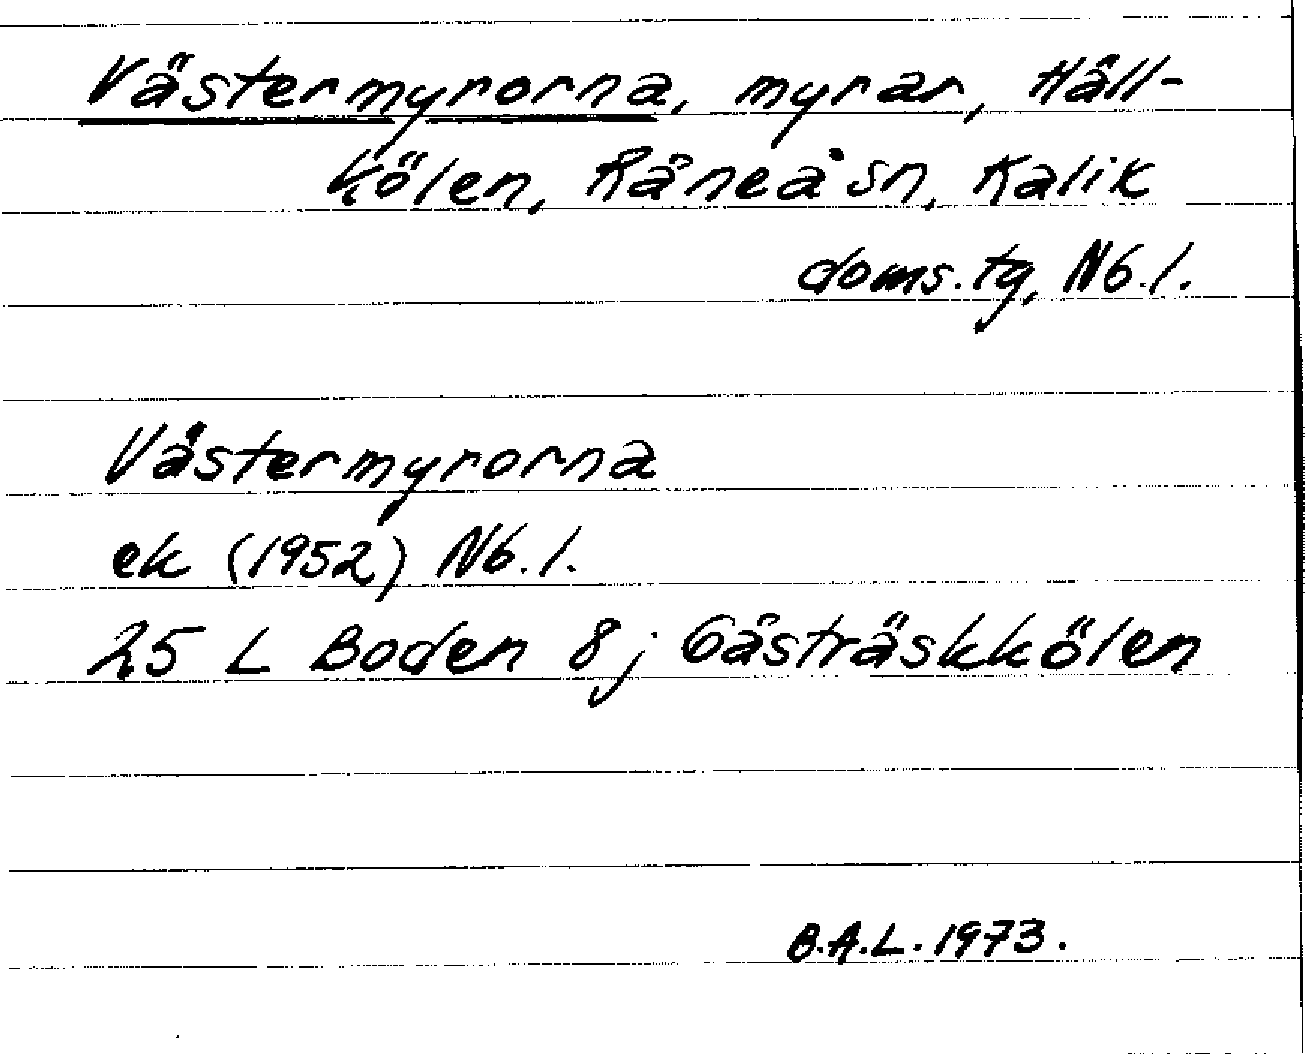 Västermyrorna, myrar, Håll-
kölen, Råneå sn, Kalix
doms.tg, Nb.l.
Västermyrorna
ek (1952) Nb.l.
25 L Boden 8j Gåsträskkölen
B.A.L. 1973.